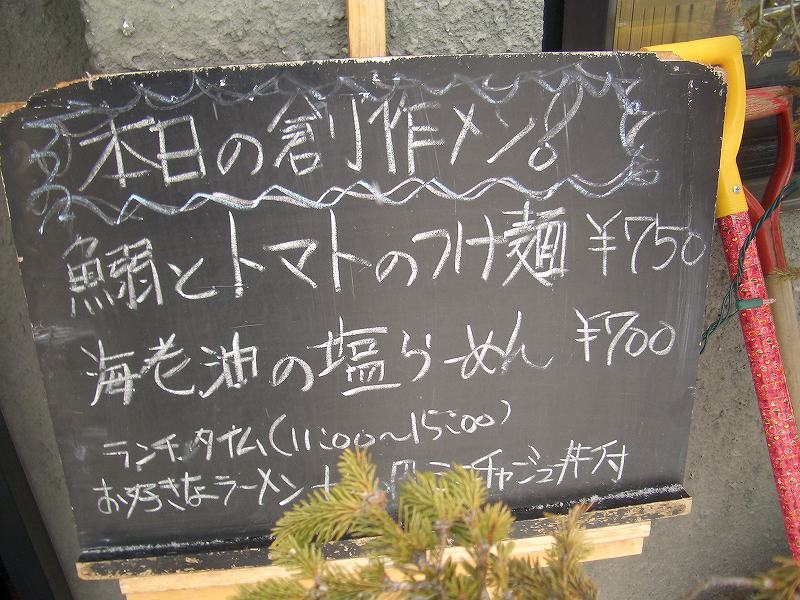 本日の創作メン!
鰯とトマトのつけ麺 ¥750
海老油の塩らーめん ¥700
ランチタイム(11:00〜15:00)
お好きなラーメン チャーシュー丼付